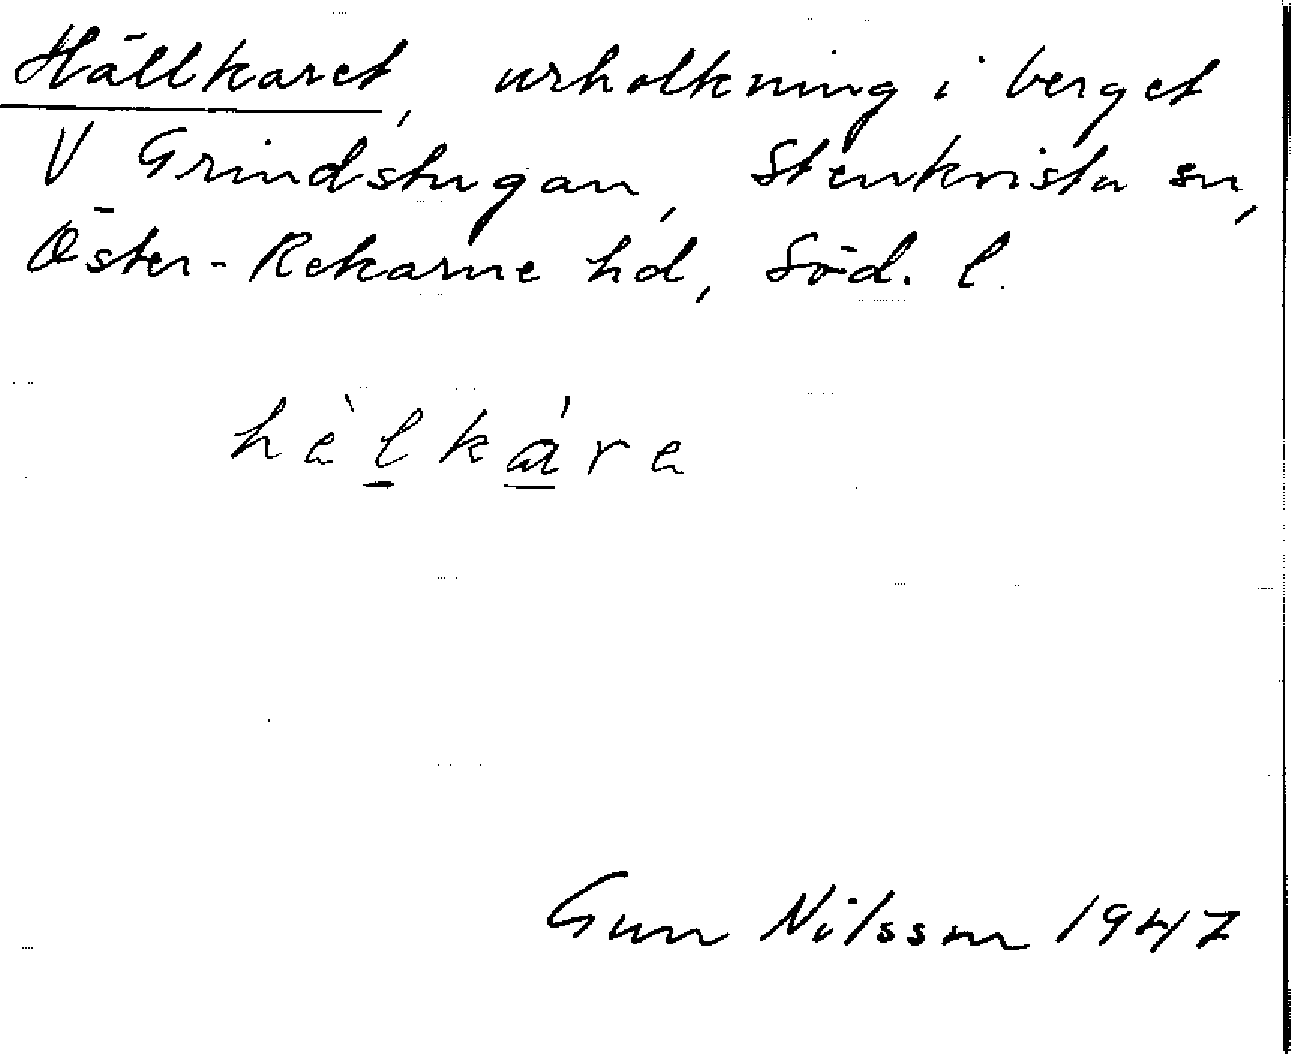 Hällkaret, urholkning i berget
V Grindstugan, Stenkvista sn,
Öster-Rekarne hd, Söd. l.
hè̀lkáre
Gun Nilsson 1947